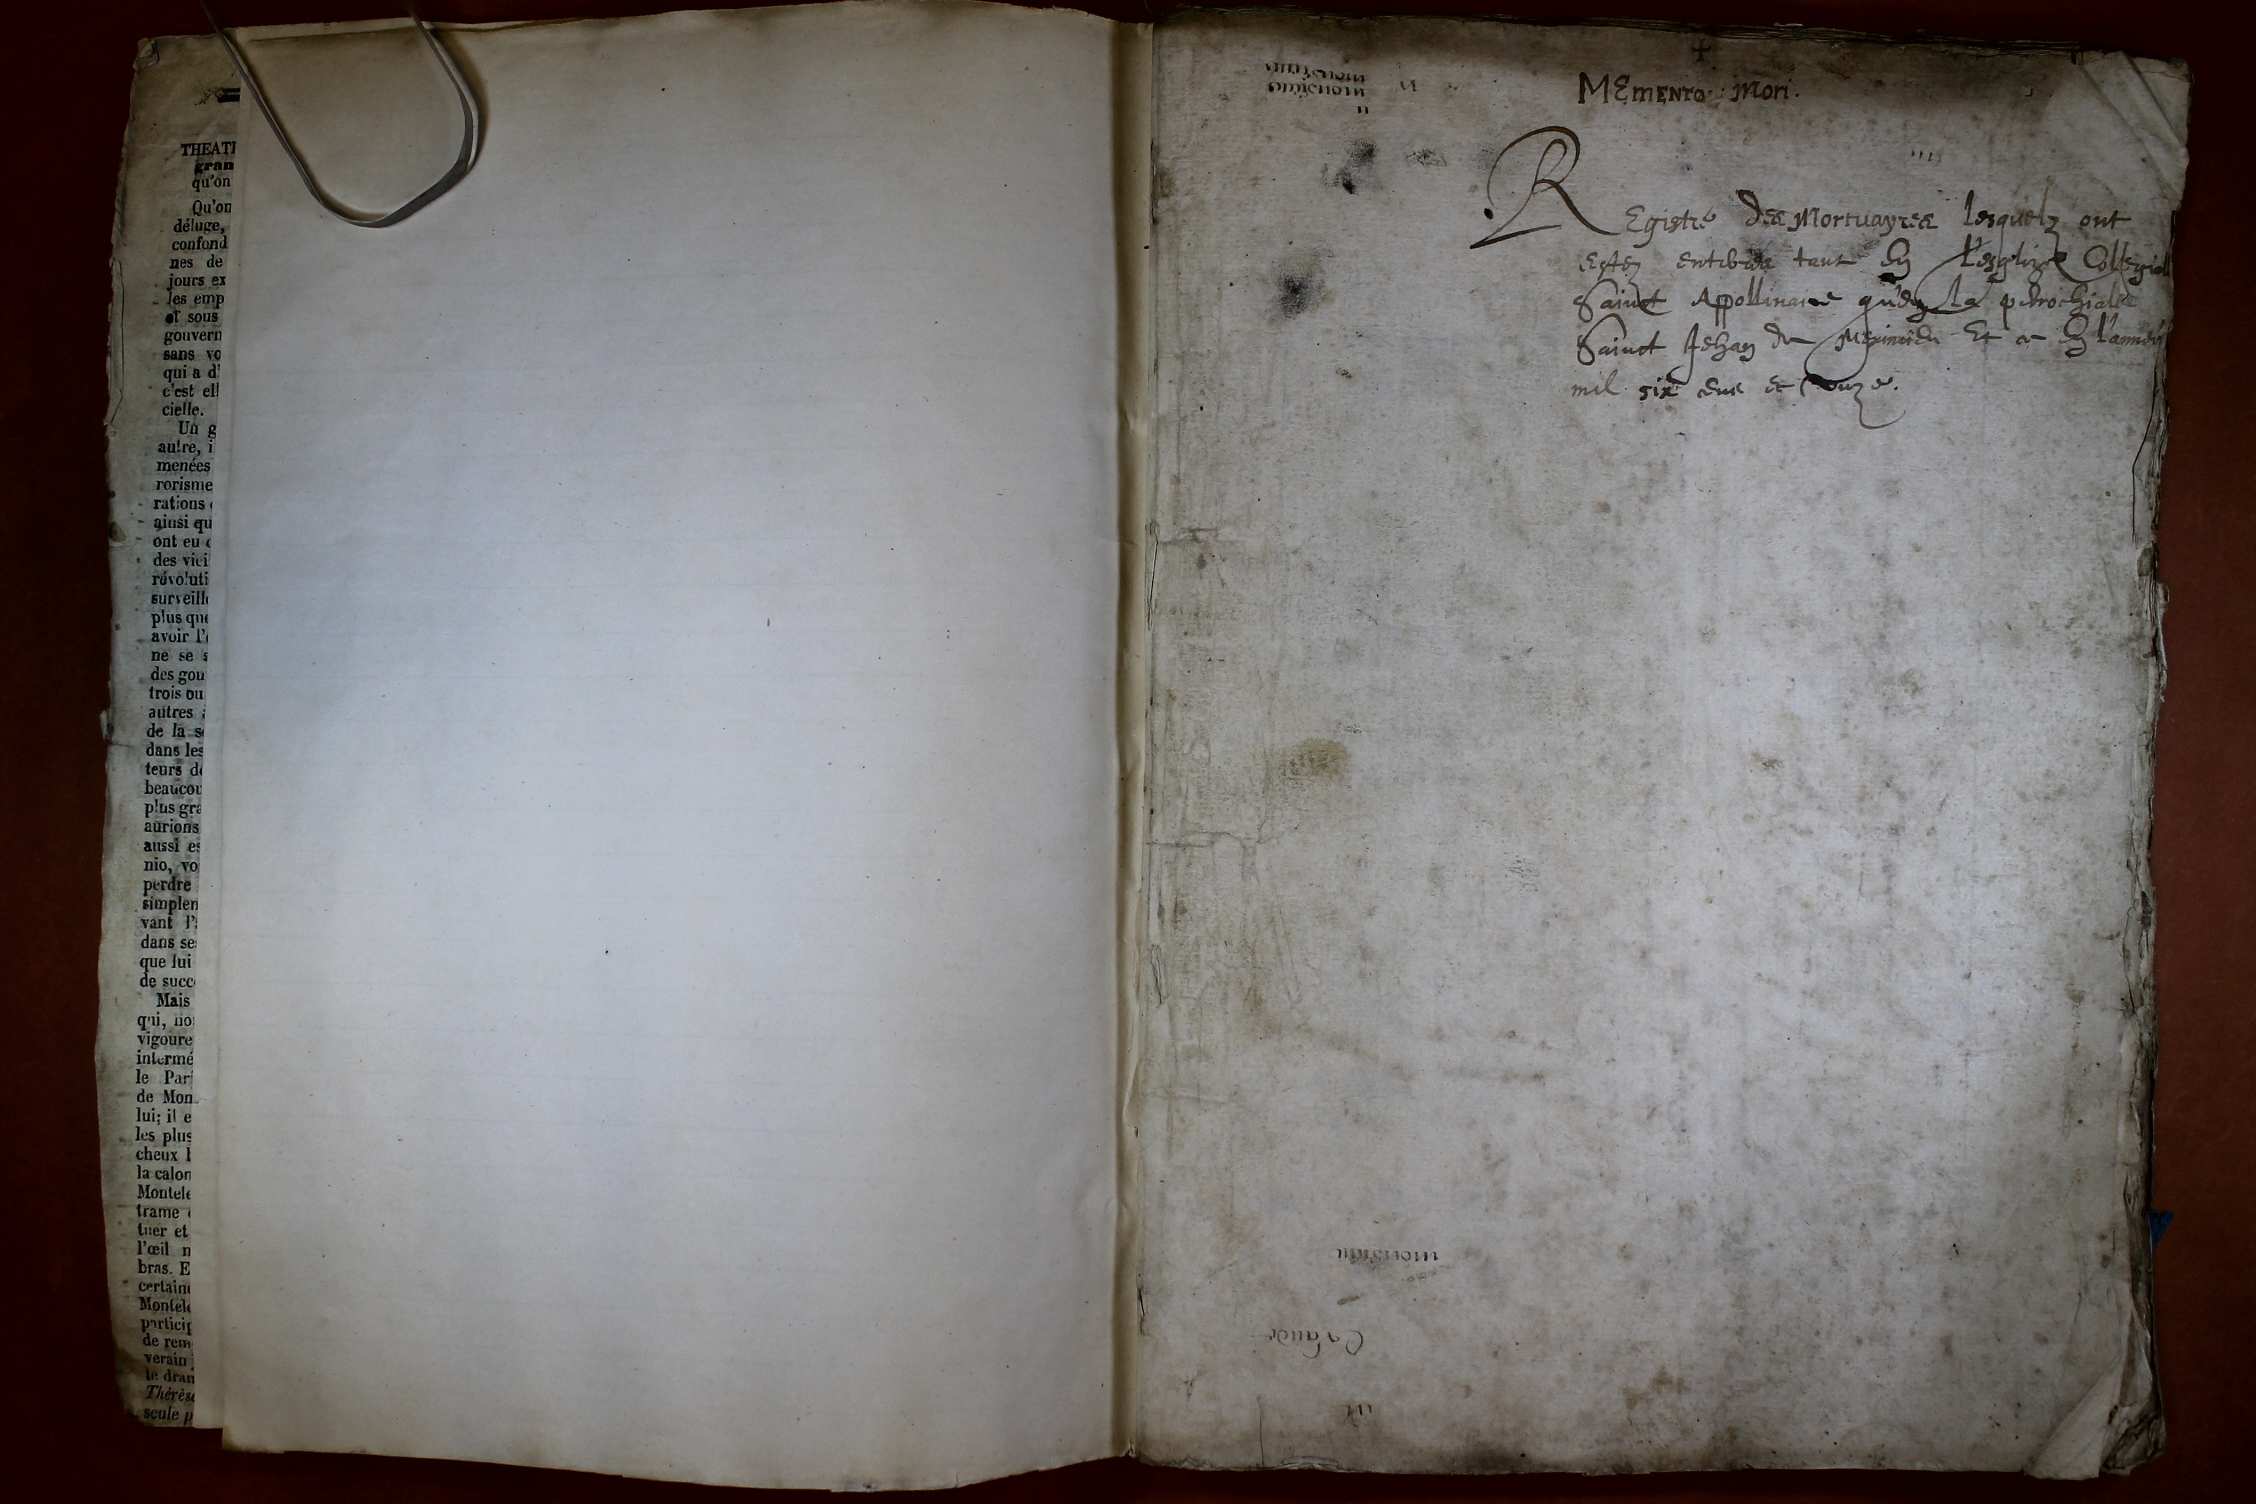 THEAT
gran
qu'on
Qu'on
déluge,
confond
nes de
jours ex
les emp
et sous
gouvern
sans vo
qui a d'
c'est ell
cielle.
Un g
autre, i
menées
rorisme
rations
ainsi qu
ont eu
des viei
révoluti
surveill
plus que
avoir l'
ne se s
des gou
trois ou
autres
de la s
dans les
teurs de
beaucou
plus gra
aurions
aussi es
nio, vo
perdre
simplen
vant l'
dans se
que lui
de succ
Mais
qui, no
vigoure
intermé
le Pari
de Mon
lui; il e
les plus
cheux l
la calon
Montele
trame
tuer et
l'œil n
bras. E
certain
Montele
particip
de rem
verain
le dram
Thérèse
seule p
+
MEmENTO : Mori .
REgistre des Mortuayres lesquelz ont
estez tant En l'esglize Collegial
Sainct Appollinaire qu'en La parrochialle
Sainct Jehan de Et ce En l'année
mil six cens et ouze.
monsieur
Claude